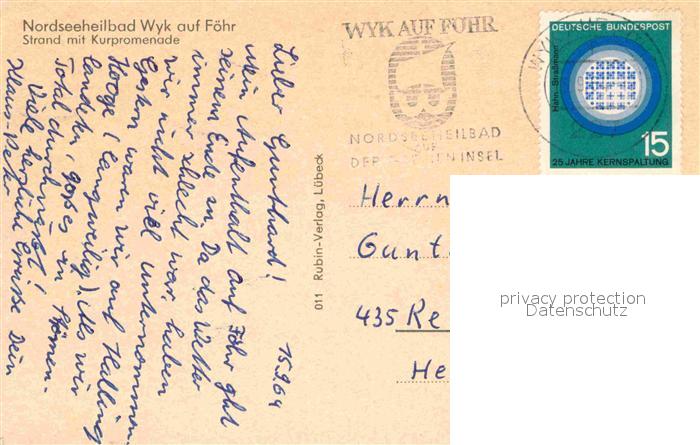 Nordseeheilbad Wyk auf Föhr
Strand mit Kurpromenade
15.9.64
Lieber Gunthard!
Mein Aufenthalt auf Föhr geht
seinem Ende zu. Da das Wetter
immer schlecht war, haben
wir nicht viel unternommen.
Gestern waren wir auf Hallig
Hooge (langweilig). Als wir
landeten, goss es in Strömen.
Total durchnässt!
Viele herzliche Grüsse Dein
Klaus-Peter
011 Rubin-Verlag, Lübeck
WYK AUF FÖHR
NORDSEEHEILBAD
AUF
DER GRÜNEN INSEL
WYK
DEUTSCHE BUNDESPOST
Hahn-Straßmann
15
25 JAHRE KERNSPALTUNG
Herrn
Gunt
435 Re
He
privacy protection
Datenschutz